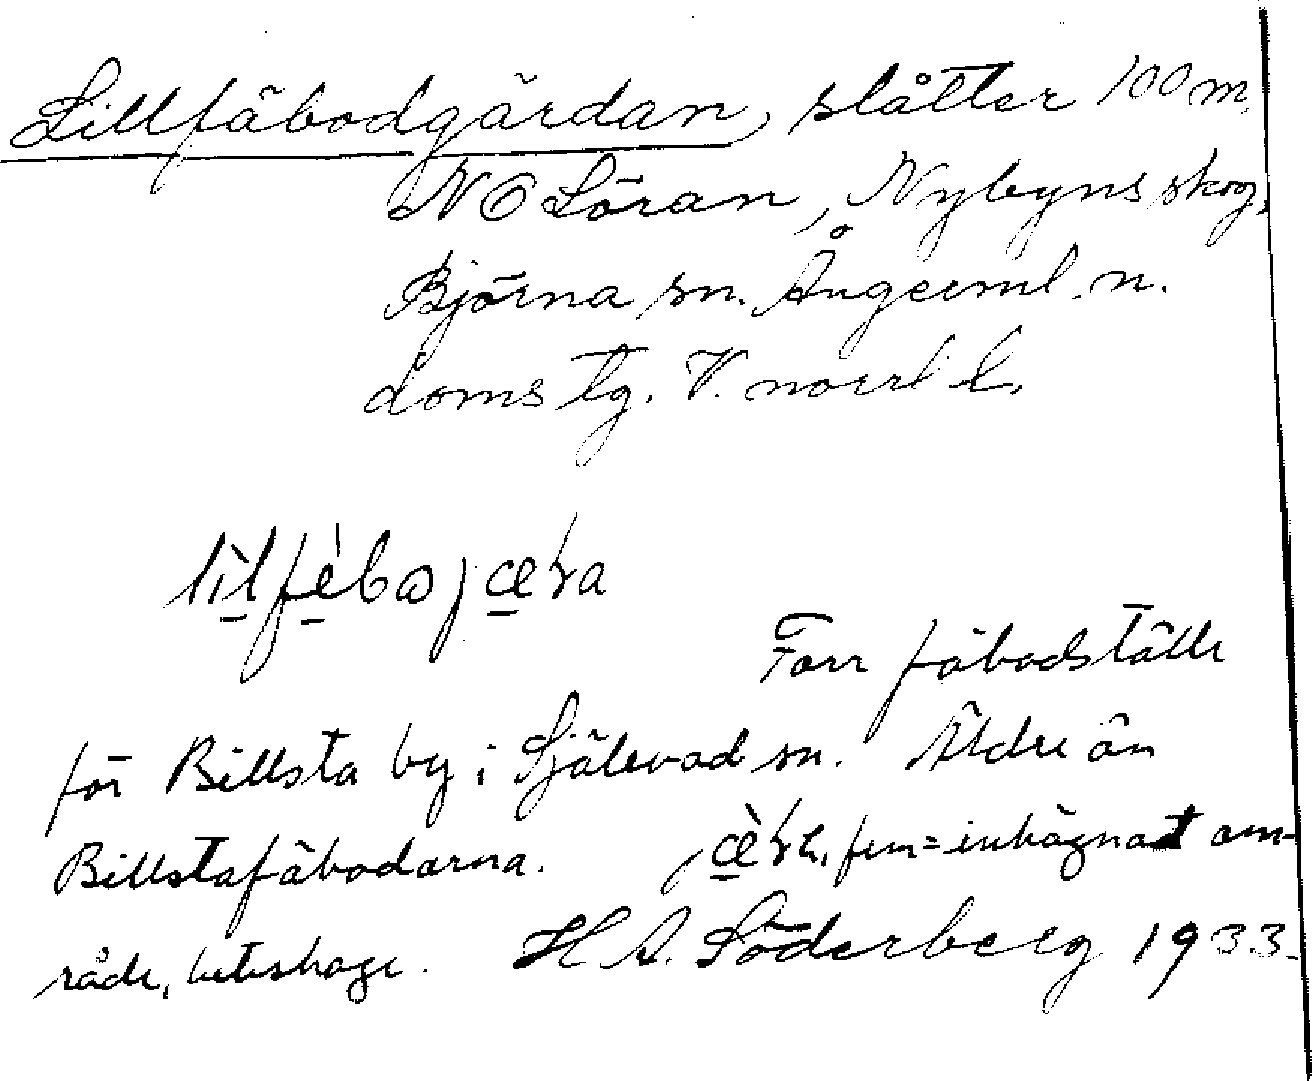 Lillfäbodgärdan, slåtter 100 m.
NO Löran, Nybyns skog,
Björna sn. Ångerml. n.
doms tg. V. norrl. l.
Förr fäbodställe
för Billsta by i Själevad sn. Äldre än
Billstafäbodarna. fem = inhägnat om-
råde, beteshage. H. A. Söderberg 1933.